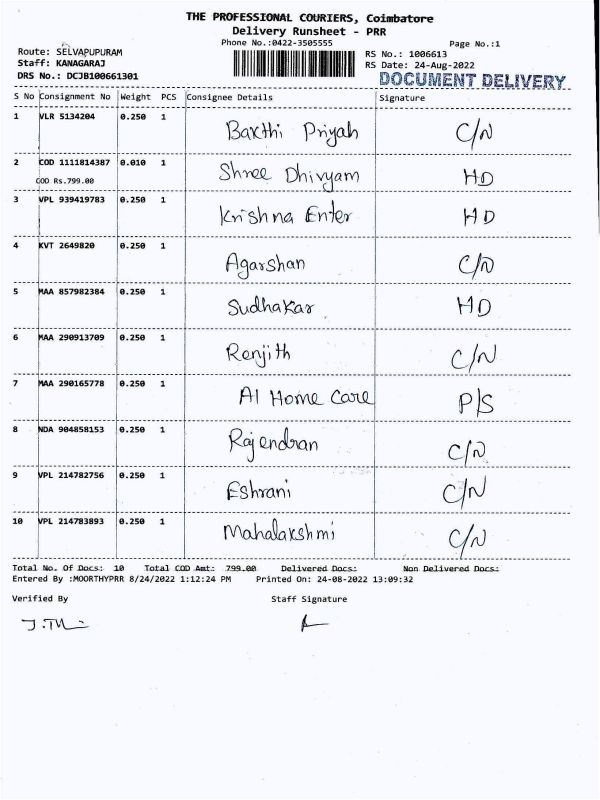 THE PROFESSIONAL COURIERS, Coimbatore
Delivery Runsheet - PRR
Phone No.:0422-3505555
Page No.:1
Route: SELVAPUPURAM
RS No.: 1006613
Staff: KANAGARAJ
RS Date: 24-Aug-2022
DRS No.: DCJB100661301
DOCUMENT DELIVERY
S No Consignment No Weight PCS Consignee Details Signature
1 VLR 5134204 0.250 1 Baxthi Priyah C/N
2 COD 1111814387 0.010 1 Shree Dhivyam HD
COD Rs.799.00
3 VPL 939419783 0.250 1 Krishna Enter HD
4 KVT 2649820 0.250 1 Agarshan C/N
5 MAA 857982384 0.250 1 Sudhakar HD
6 MAA 290913709 0.250 1 Renjith C/N
7 MAA 290165778 0.250 1 AI Home Care P/S
8 NDA 904858153 0.250 1 Rajendran C/N
9 VPL 214782756 0.250 1 Eshrani C/N
10 VPL 214783893 0.250 1 Mahalakshmi C/N
Total No. Of Docs: 10 Total COD Amt: 799.00 Delivered Docs: Non Delivered Docs:
Entered By :MOORTHYPRR 8/24/2022 1:12:24 PM Printed On: 24-08-2022 13:09:32
Verified By Staff Signature